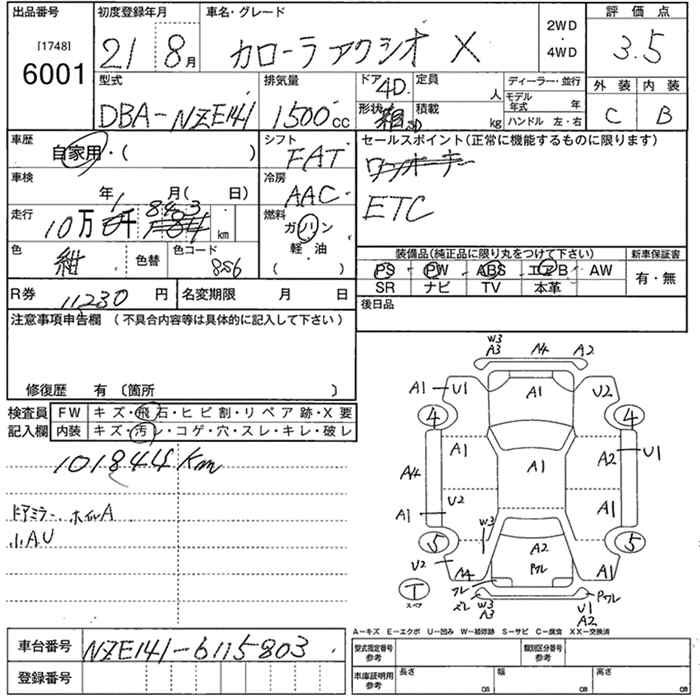 出品番号 初度登録年月 車名・グレード 評価点
[1748] 6001 21 8月 カローラアクシオ X 2WD 4WD 3.5
型式 排気量 ドア 定員 ディーラー・並行 外装 内装
DBA-NZE141 1500cc 4D 人 モデル年式 年 C B
形状 箱 積載 kg ハンドル 左・右
車歴 シフト セールスポイント(正常に機能するものに限ります)
自家用・( ) FAT
車検 冷房
年 月( 日) AAC ETC
走行 燃料
10万 1 8 4 3 km ガソリン
色 色替 色コード 軽油 装備品(純正品に限り丸をつけて下さい) 新車保証書
紺 8S6 ( ) PS PW ABS エアB AW 有・無
R券 11230円 名変期限 月 日 SR ナビ TV 本革
注意事項申告欄 (不具合内容等は具体的に記入して下さい) 後日品
修復歴 有 〔箇所 〕
検査員 FW キズ・飛石・ヒビ割・リペア跡・X要
記入欄 内装 キズ・汚レ・コゲ・穴・スレ・キレ・破レ
101844Km
ドアミラー ホイルA
小AU
W3 A3 A4 A2
A1 U1 A1 U2 A1
4 4
A1 A1 A2 U1
A4
U2
A1 A1
5 W3 5
A2
U2 A4 Pワレ A1
T フレ Pワレ
スペア ズレ W3 A3 U1 A2
A-キズ E-エクボ U-凹み W-補修跡 S-サビ C-腐食 XX-交換済
車台番号 NZE141-6115803 型式指定番号 参考 類別区分番号 参考
登録番号 車庫証明用 参考 長さ cm 幅 cm 高さ cm